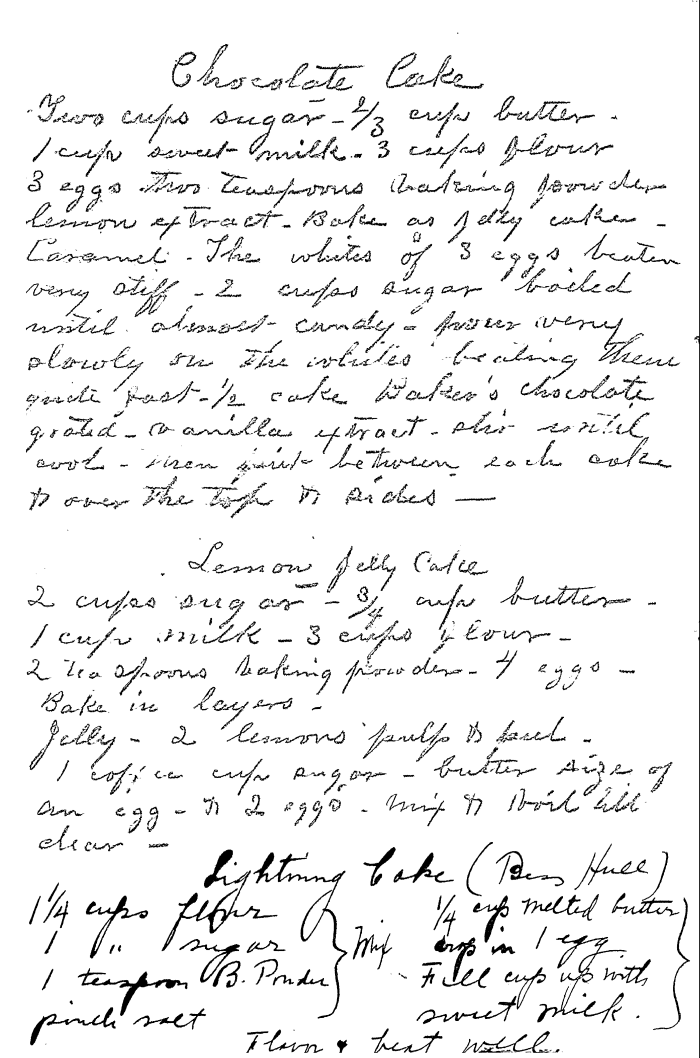 Chocolate Cake
Two cups sugar - 2/3 cup butter -
1 cup sweet milk - 3 cups flour
3 eggs two teaspoons baking powder
lemon extract - Bake as jelly cake -
Caramel - The whites of 3 eggs beaten
very stiff - 2 cups sugar boiled
until almost candy - pour very
slowly on the whites beating them
quite fast - 1/2 cake Baker's chocolate
grated - vanilla extract - stir until
cool - then put between each cake
& over the top & sides —
Lemon Jelly Cake
2 cups sugar - 3/4 cup butter -
1 cup milk - 3 cups flour -
2 teaspoons baking powder - 4 eggs -
Bake in layers -
Jelly - 2 lemons pulp & peel -
1 coffee cup sugar - butter size of
an egg - & 2 eggs - mix & boil till
clear —
Lightning Cake (Bess Hull)
1 1/4 cups flour } 1/4 cup melted butter }
1 " sugar Mix drop in 1 egg
1 teaspoon B. Powder - Fill cup up with
pinch salt sweet milk.
Flavor & beat well.